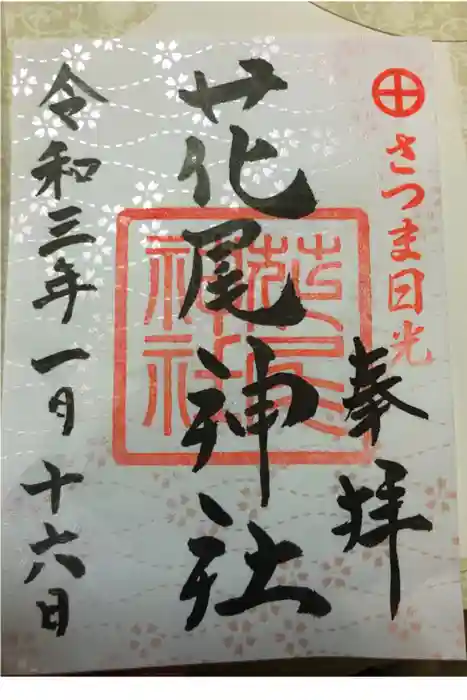 さつま日光
奉拝
花尾神社
花尾神社
令和三年一月十六日